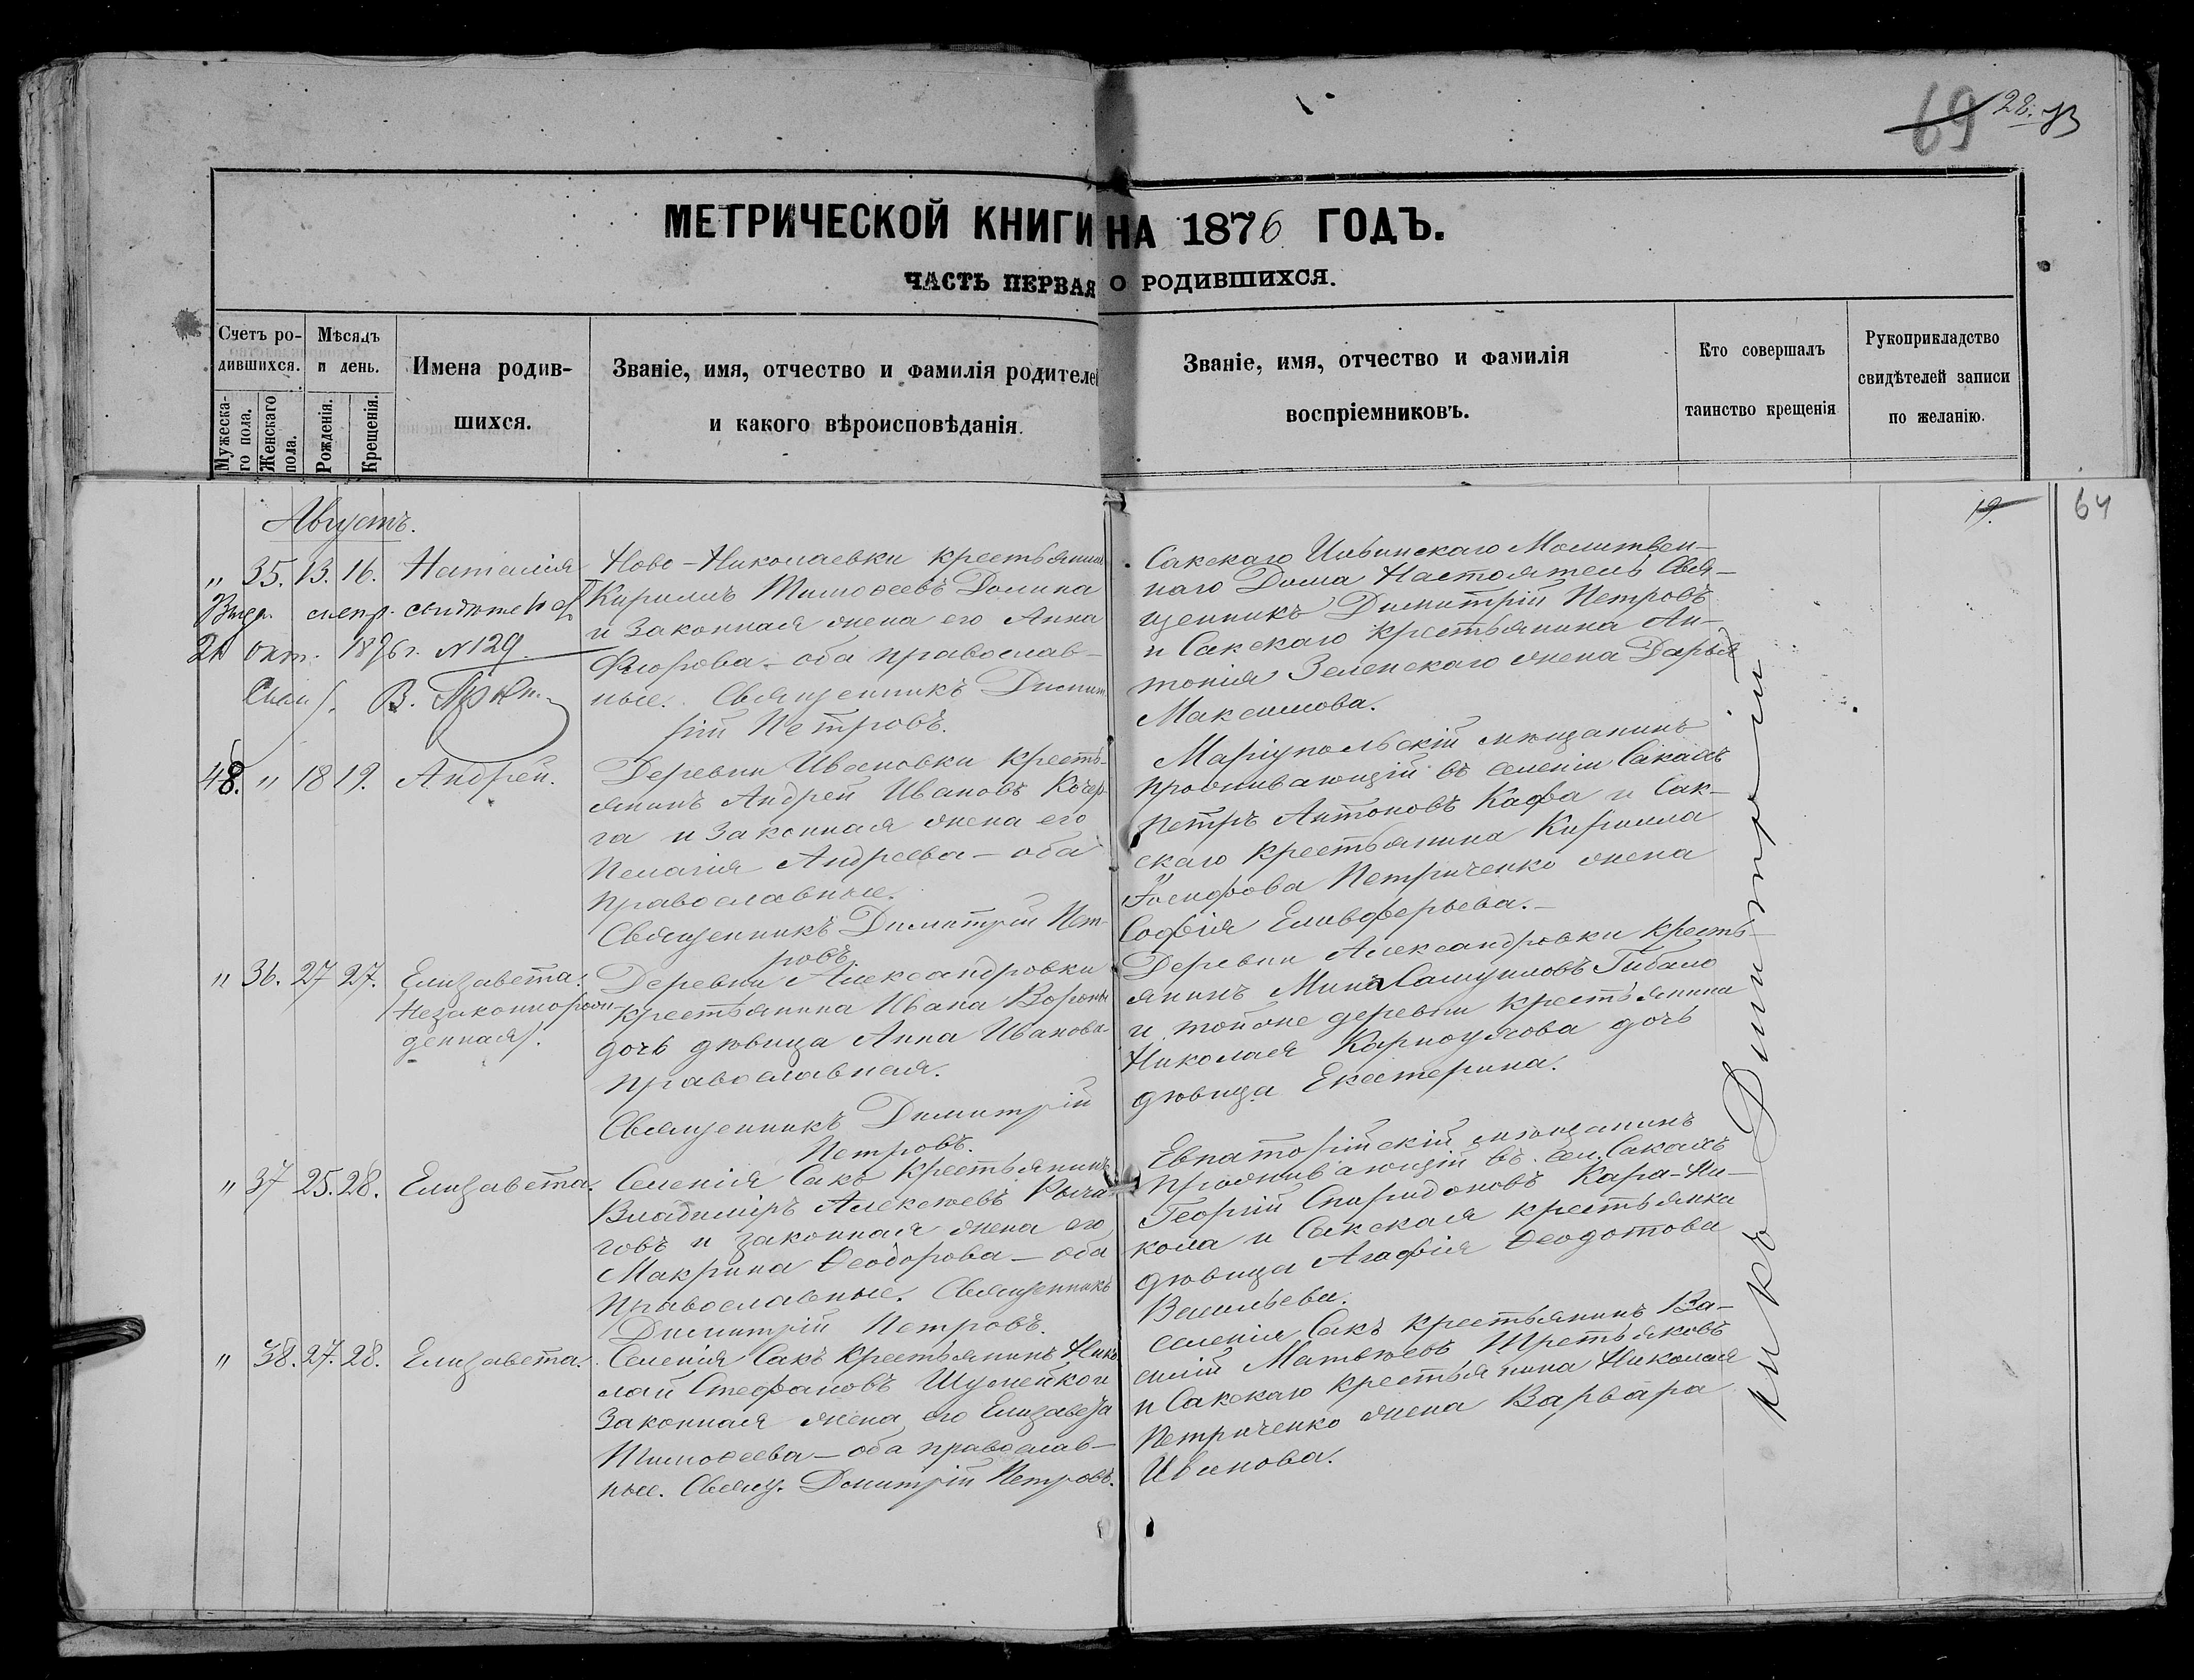 69 28.
МЕТРИЧЕСКОЙ КНИГИ НА 1876 ГОДЪ.
ЧАСТЬ ПЕРВАЯ О РОДИВШИХСЯ.
Счетъ ро-
дившихся.
Мужеска-
го пола.
Женскаго
пола.
Мѣсяцъ
и день.
Рожденія.
Крещенія.
Имена родив-
шихся.
Званіе, имя, отчество и фамилія родителей
и какого вѣроисповѣданія.
Званіе, имя, отчество и фамилія
воспріемниковъ.
Кто совершалъ
таинство крещенія
Рукоприкладство
свидѣтелей записи
по желанію.
19. 64
Августъ.
" 35. 13. 16. Наталія
21 окт. 1896 г. N 129
Ново-Николаевки крестьянинъ
Кириллъ Тимоѳеевъ Долина
и законная жена его Анна
Флорова - оба православ-
ные. Священникъ Димит
рій Петровъ.
Сакскаго Ильинскаго Молитвен-
наго Дома Настоятель Свя-
щенникъ Димитрій Петровъ
и Сакскаго крестьянина Ан-
тонія Зеленскаго жена Дарья
Максимова.
48. " 18 19. Андрей.
Деревни Ивановки кресть-
янинъ Андрей Ивановъ Кочер-
га и законная жена его
Пелагія Андреева - оба
православные.
Священникъ Димитрій Пет-
ровъ.
Маріупольскій мѣщанинъ
проживающій въ селеніи Сакахъ
Петръ Антоновъ Кафа и Сак-
скаго крестьянина Кирилла
Іосифова Петриченко жена
Софія Елевферьева.-
" 36. 27 27. Елизавета.
(Незаконнорож-
денная).
Деревни Александровки
крестьянина Ивана Вороны
дочь дѣвица Анна Иванова-
православная.
Священникъ Димитрій
Петровъ.
Деревни Александровки кресть-
янинъ Мина Самуиловъ Гибало
и той же деревни крестьянина
Николая Карноухова дочь
дѣвица Екатерина.
" 37 25. 28. Елизавета.
Селенія Сакъ крестьянинъ
Владиміръ Алексѣевъ Рыча-
говъ и законная жена его
Макрина Ѳеодорова - оба
православные. Священникъ
Димитрій Петровъ.
Евпаторійскій мѣщанинъ
проживающій въ сел. Сакахъ
Георгій Спиридоновъ Кара-Ни-
кола и Сакская крестьянка
дѣвица Агафія Ѳеодотова
Васильева.
" 38. 27. 28. Елизавета.
Селенія Сакъ крестьянинъ Нико
лай Стефановъ Шумейко и
законная жена его Елизавета
Тимоѳеева - оба православ-
ные. Свящ. Димитрій Петровъ.
Селенія Сакъ крестьянинъ Ва-
силій Матвѣевъ Третьяковъ
и Сакскаго крестьянина Николая
Петриченко жена Варвара
Иванова.
никъ Димитрій